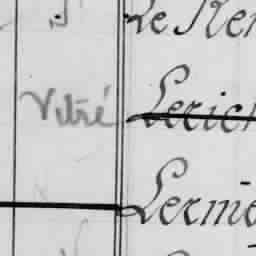 Le Ren
Vitré Lerich
Lermé